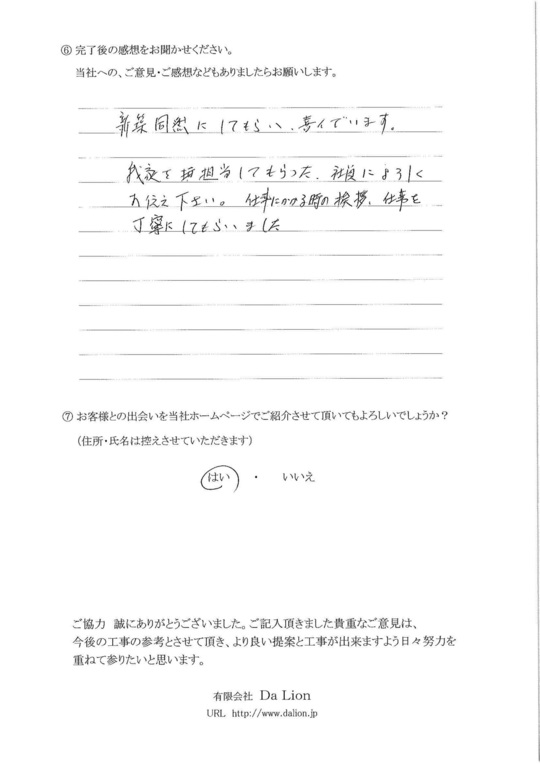 ⑥ 完了後の感想をお聞かせください。
当社への、ご意見・ご感想などもありましたらお願いします。
新築同然にしてもらい、喜んでいます。
我家を担当してもらった、社員によろしく
お伝え下さい。仕事にかかる時の挨拶、仕事を
丁寧にしてもらいました
⑦ お客様との出会いを当社ホームページでご紹介させて頂いてもよろしいでしょうか？
（住所・氏名は控えさせていただきます）
はい ・ いいえ
ご協力 誠にありがとうございました。ご記入頂きました貴重なご意見は、
今後の工事の参考とさせて頂き、より良い提案と工事が出来ますよう日々努力を
重ねて参りたいと思います。
有限会社 Da Lion
URL http://www.dalion.jp